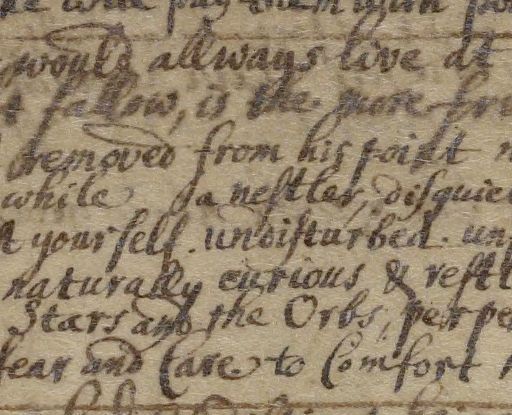 would allways live at
fellow, is the more
removed from his point
while a nestler, disquie
yourself undisturbed. un
naturally curious & restl
Stars and the Orbs, perpe
fear and Care to Comfort